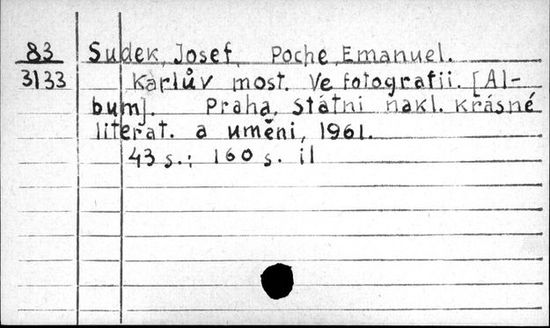 83 Sudek, Josef, Poche, Emanuel.
3133 Karlův most. Ve fotografii. [Al-
bum]. Praha, Státni nakl. Krásné
literat. a uměni, 1961.
43 s.; 160 s. il